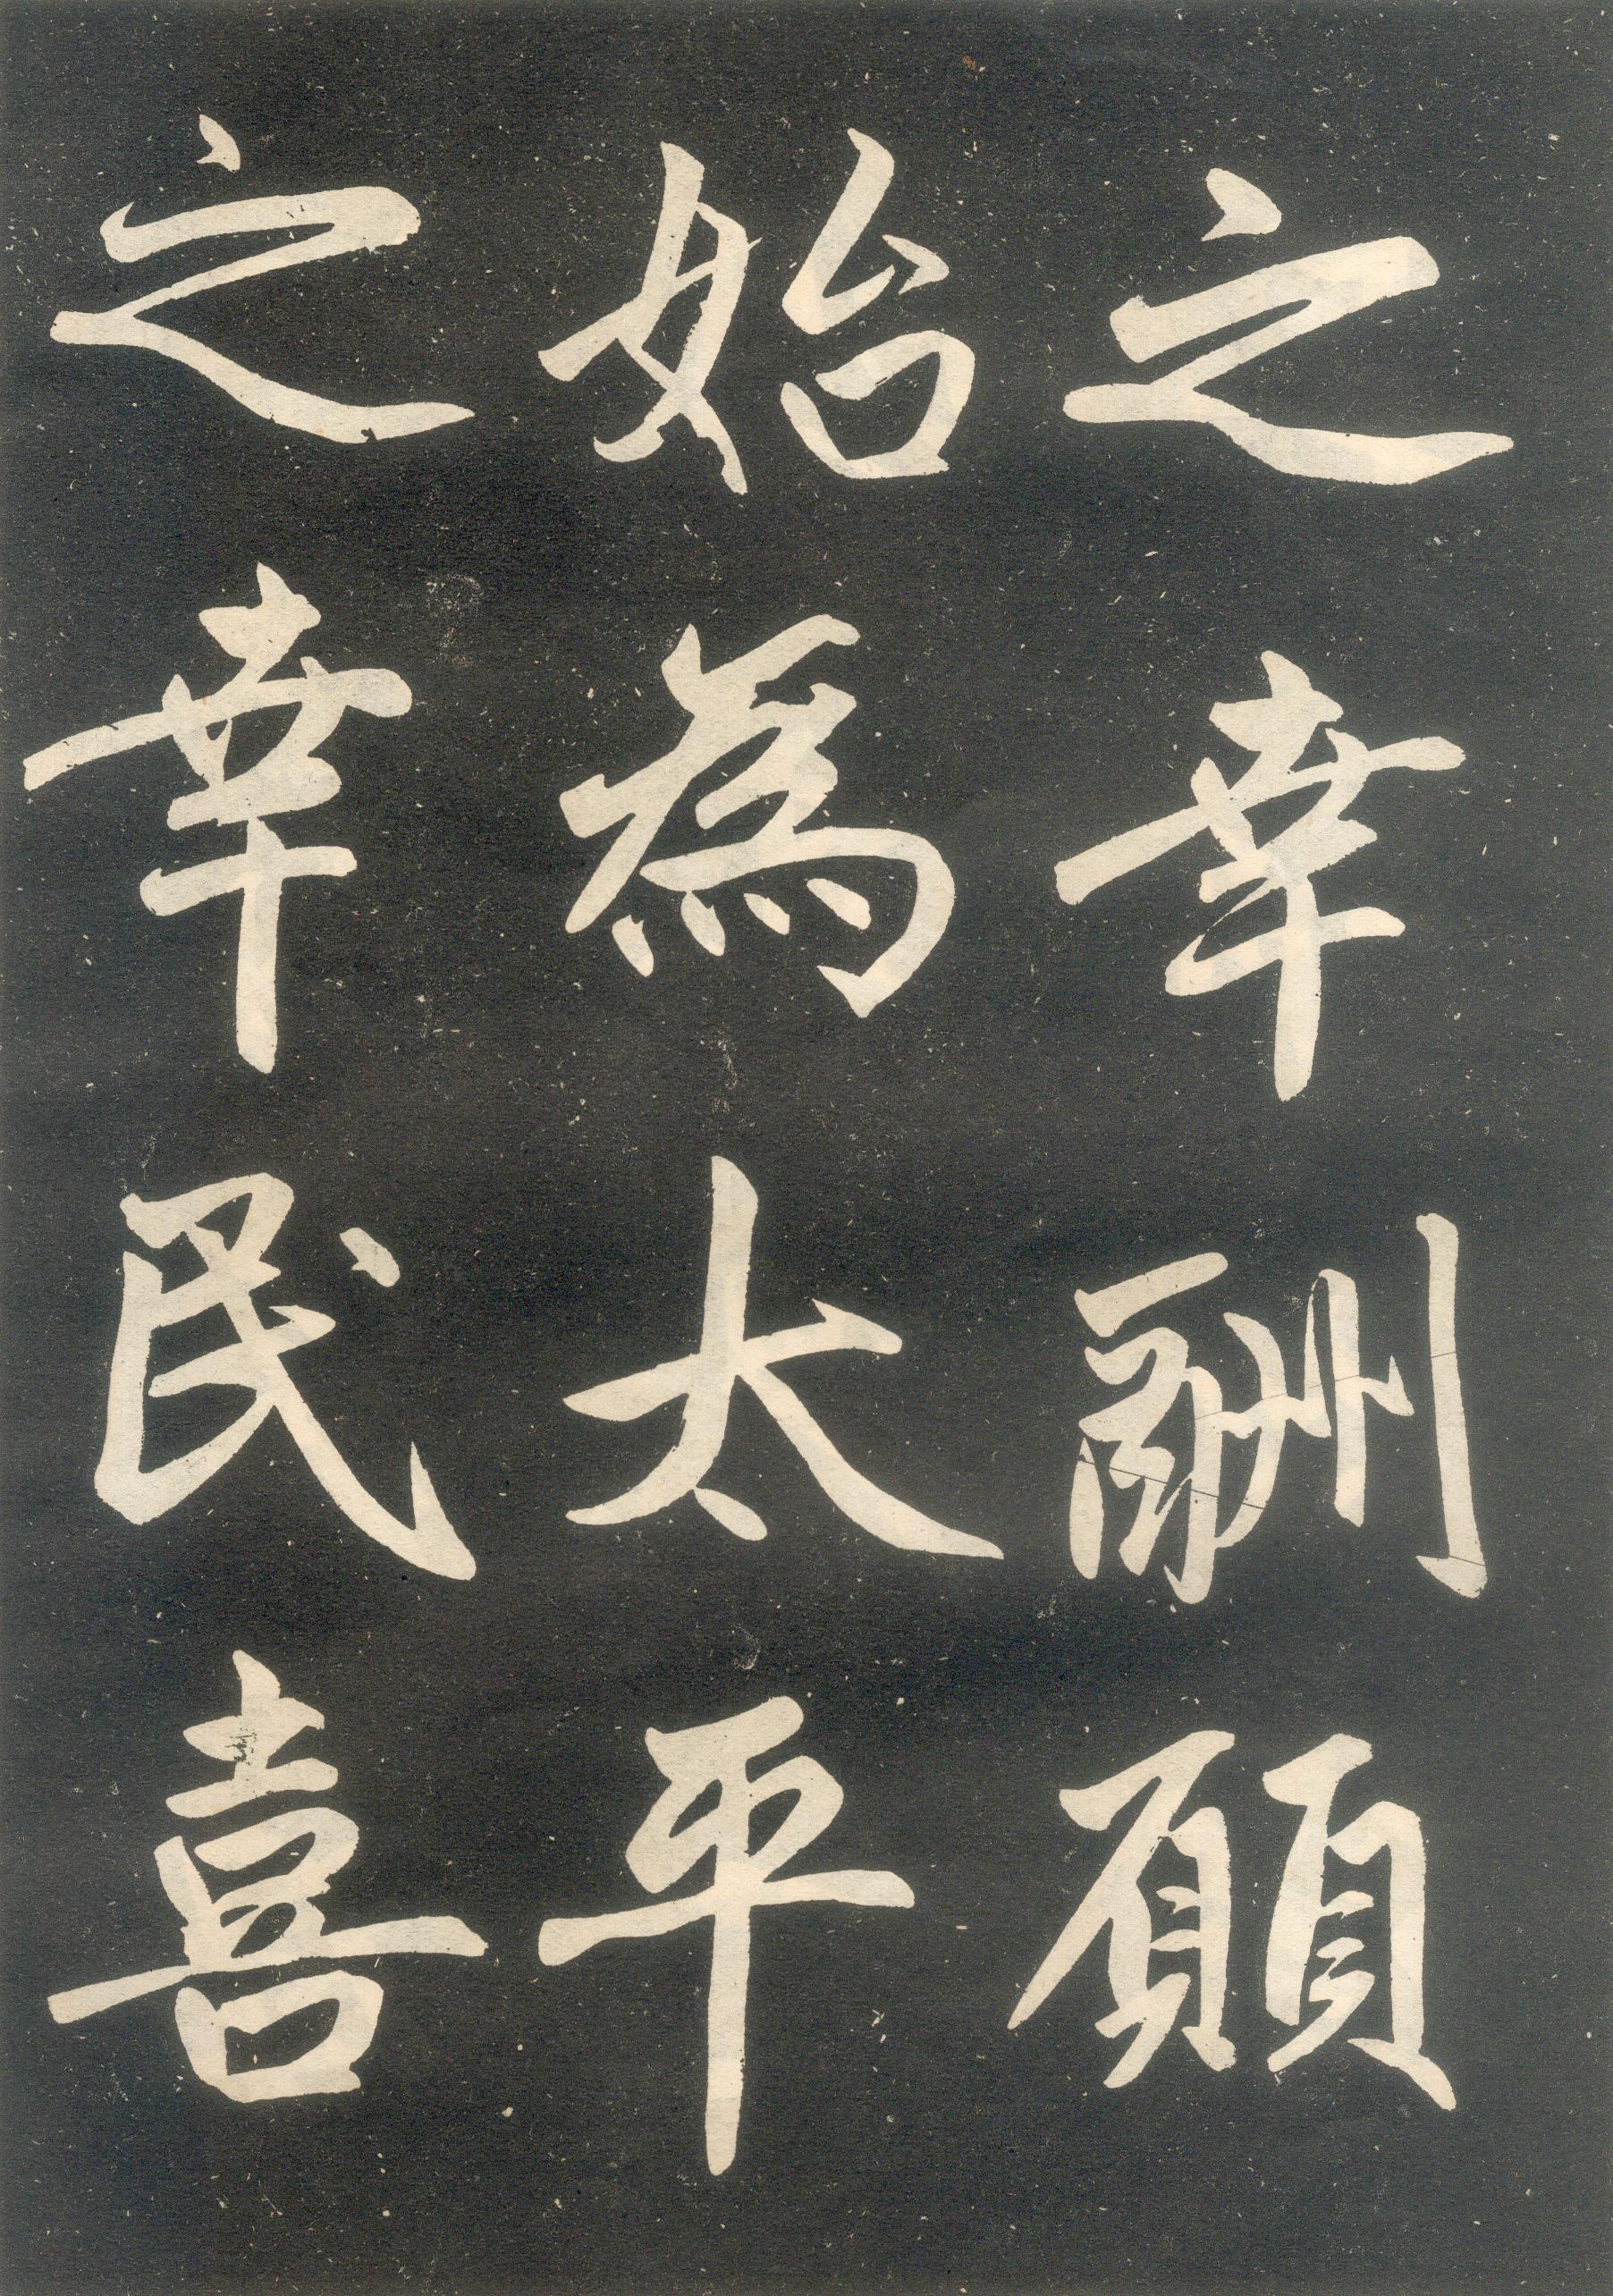 之幸酬願
始為太平
之幸民喜